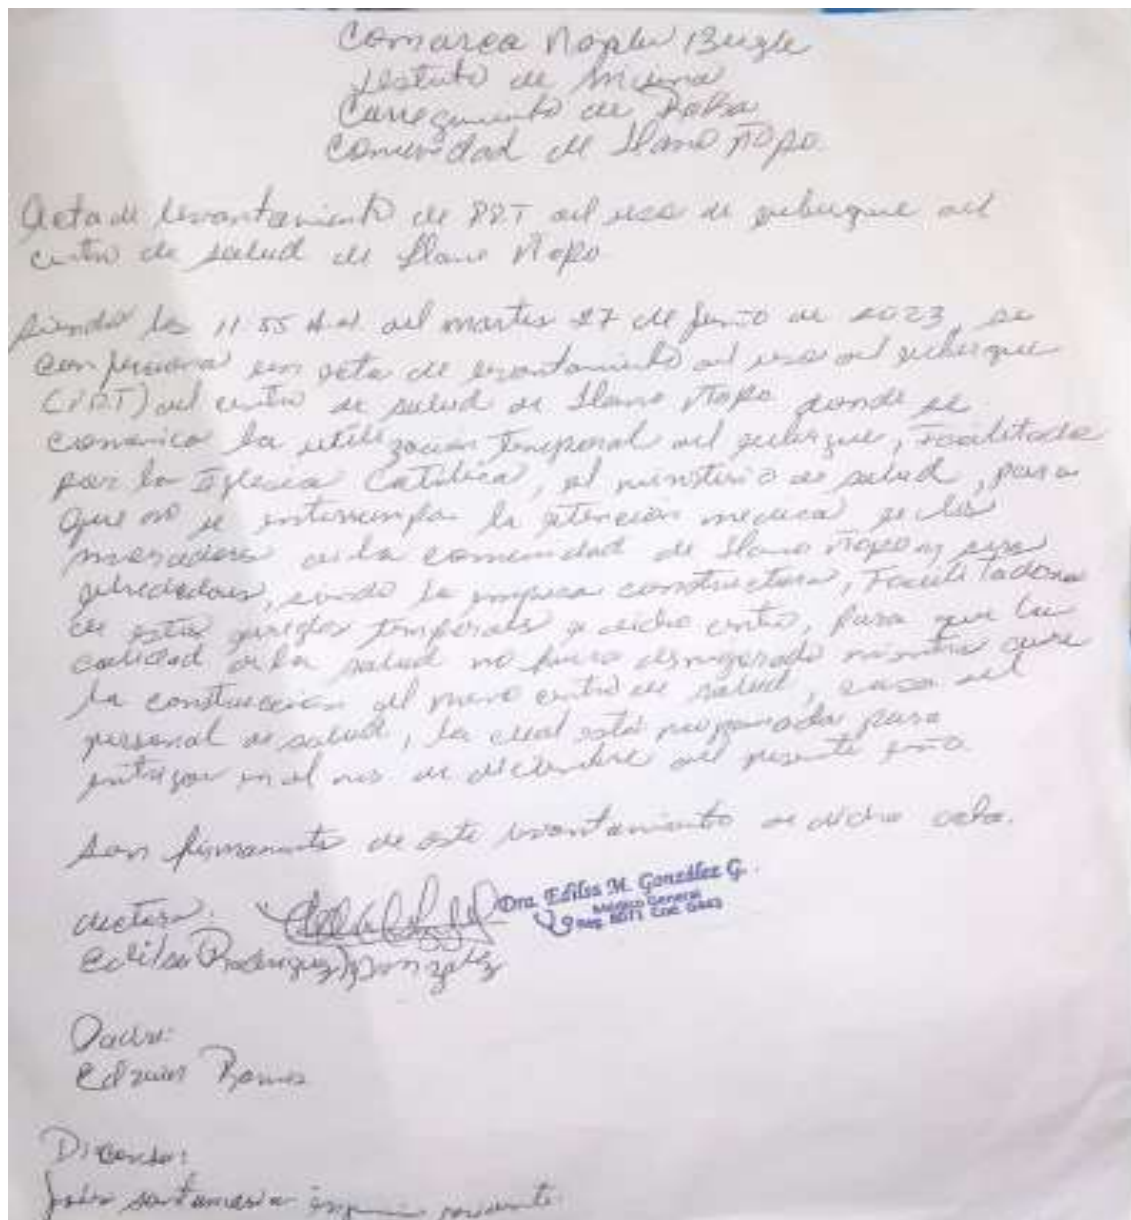 Comarca Nogbe Bugle
de
Corregimiento de
Comunidad de Llano Ñopo
Acta de levantamiento de del uso de albergue del
centro de salud de Llano Ñopo
Siendo las 11:55 del martes 27 de junio de 2023, se
confecciona un acta de levantamiento del uso del albergue
del centro de salud de Llano Ñopo donde se
la utilización temporal del albergue, Facilitada
por la Iglesia Católica, al ministerio de salud, para
que no se interrumpa la atención medica a los
moradores de la comunidad de Llano Ñopo y sus
alrededores, la empresa constructora, Facilitadora
de estos arreglos temporales a dicho centro, para que la
calidad de la salud no fuera mientras dure
la construcción del nuevo centro de salud, casa del
personal de salud, la cual está para
entregar en el mes de diciembre del presente año.
Son firmantes de este levantamiento de dicha acta.
doctora:
Dra. Edilsa M. González G.
Médico General
Reg. Cod.
Edilsa Rodriguez González
Padre:
Ramos
santamaria residente